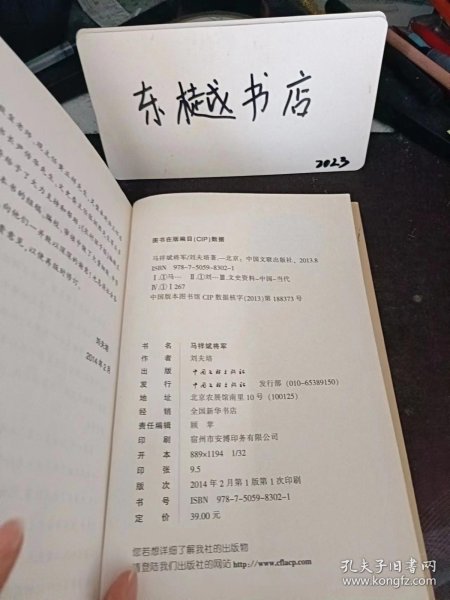 东樾书店
2023
图书在版编目(CIP)数据
马祥斌将军/刘夫培著.—北京:中国文联出版社,2013.8
ISBN 978-7-5059-8302-1
Ⅰ.①马… Ⅱ.①刘… Ⅲ.文史资料-中国-当代
Ⅳ.①I267
中国版本图书馆CIP数据核字(2013)第188373号
书名 马祥斌将军
作者 刘夫培
出版 中国文联出版社
发行 中国文联出版社 发行部 (010-65389150)
地址 北京农展馆南里10号(100125)
经销 全国新华书店
责任编辑 顾苹
印刷 宿州市安博印务有限公司
开本 889×1194 1/32
印张 9.5
版次 2014年2月第1版第1次印刷
书号 ISBN 978-7-5059-8302-1
定价 39.00元
您若想详细了解我社的出版物
请登陆我们出版社的网站http://www.cflacp.com
刘夫培
2014年2月
孔夫子旧书网
www.kongfz.com